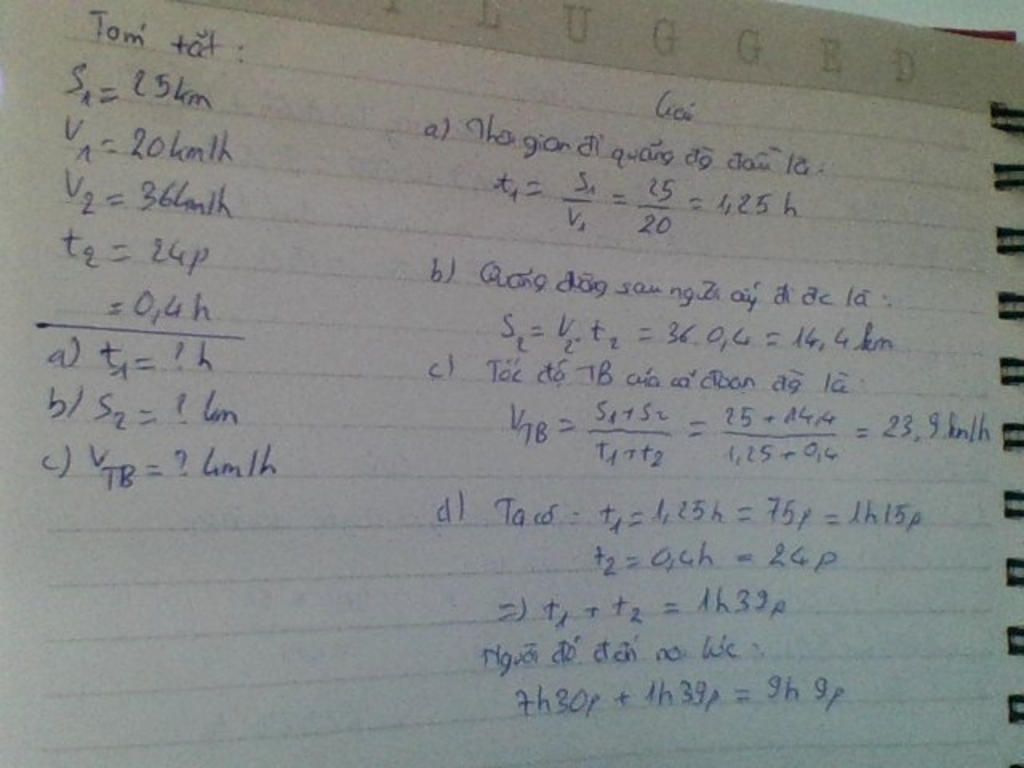 LUGGED
Tóm tắt :
S₁ = 25km
V₁ = 20km/h
V₂ = 36km/h
t₂ = 24p
= 0,4h
a) t₁ = ? h
b) S₂ = ? km
c) V_TB = ? km/h
Giải
a) Thời gian đi quãng đg đầu là :
t₁ = S₁/V₁ = 25/20 = 1,25 h
b) Quãng đường sau người ấy đi đc là :
S₂ = V₂.t₂ = 36.0,4 = 14,4 km
c) Tốc độ TB của cả đoạn đg là :
V_TB = (S₁+S₂)/(t₁+t₂) = (25+14,4)/(1,25+0,4) = 23,9 km/h
d) Ta có : t₁ = 1,25h = 75p = 1h15p
t₂ = 0,4h = 24p
=> t₁ + t₂ = 1h39p
Người đó đến nơi lúc :
7h30p + 1h39p = 9h9p